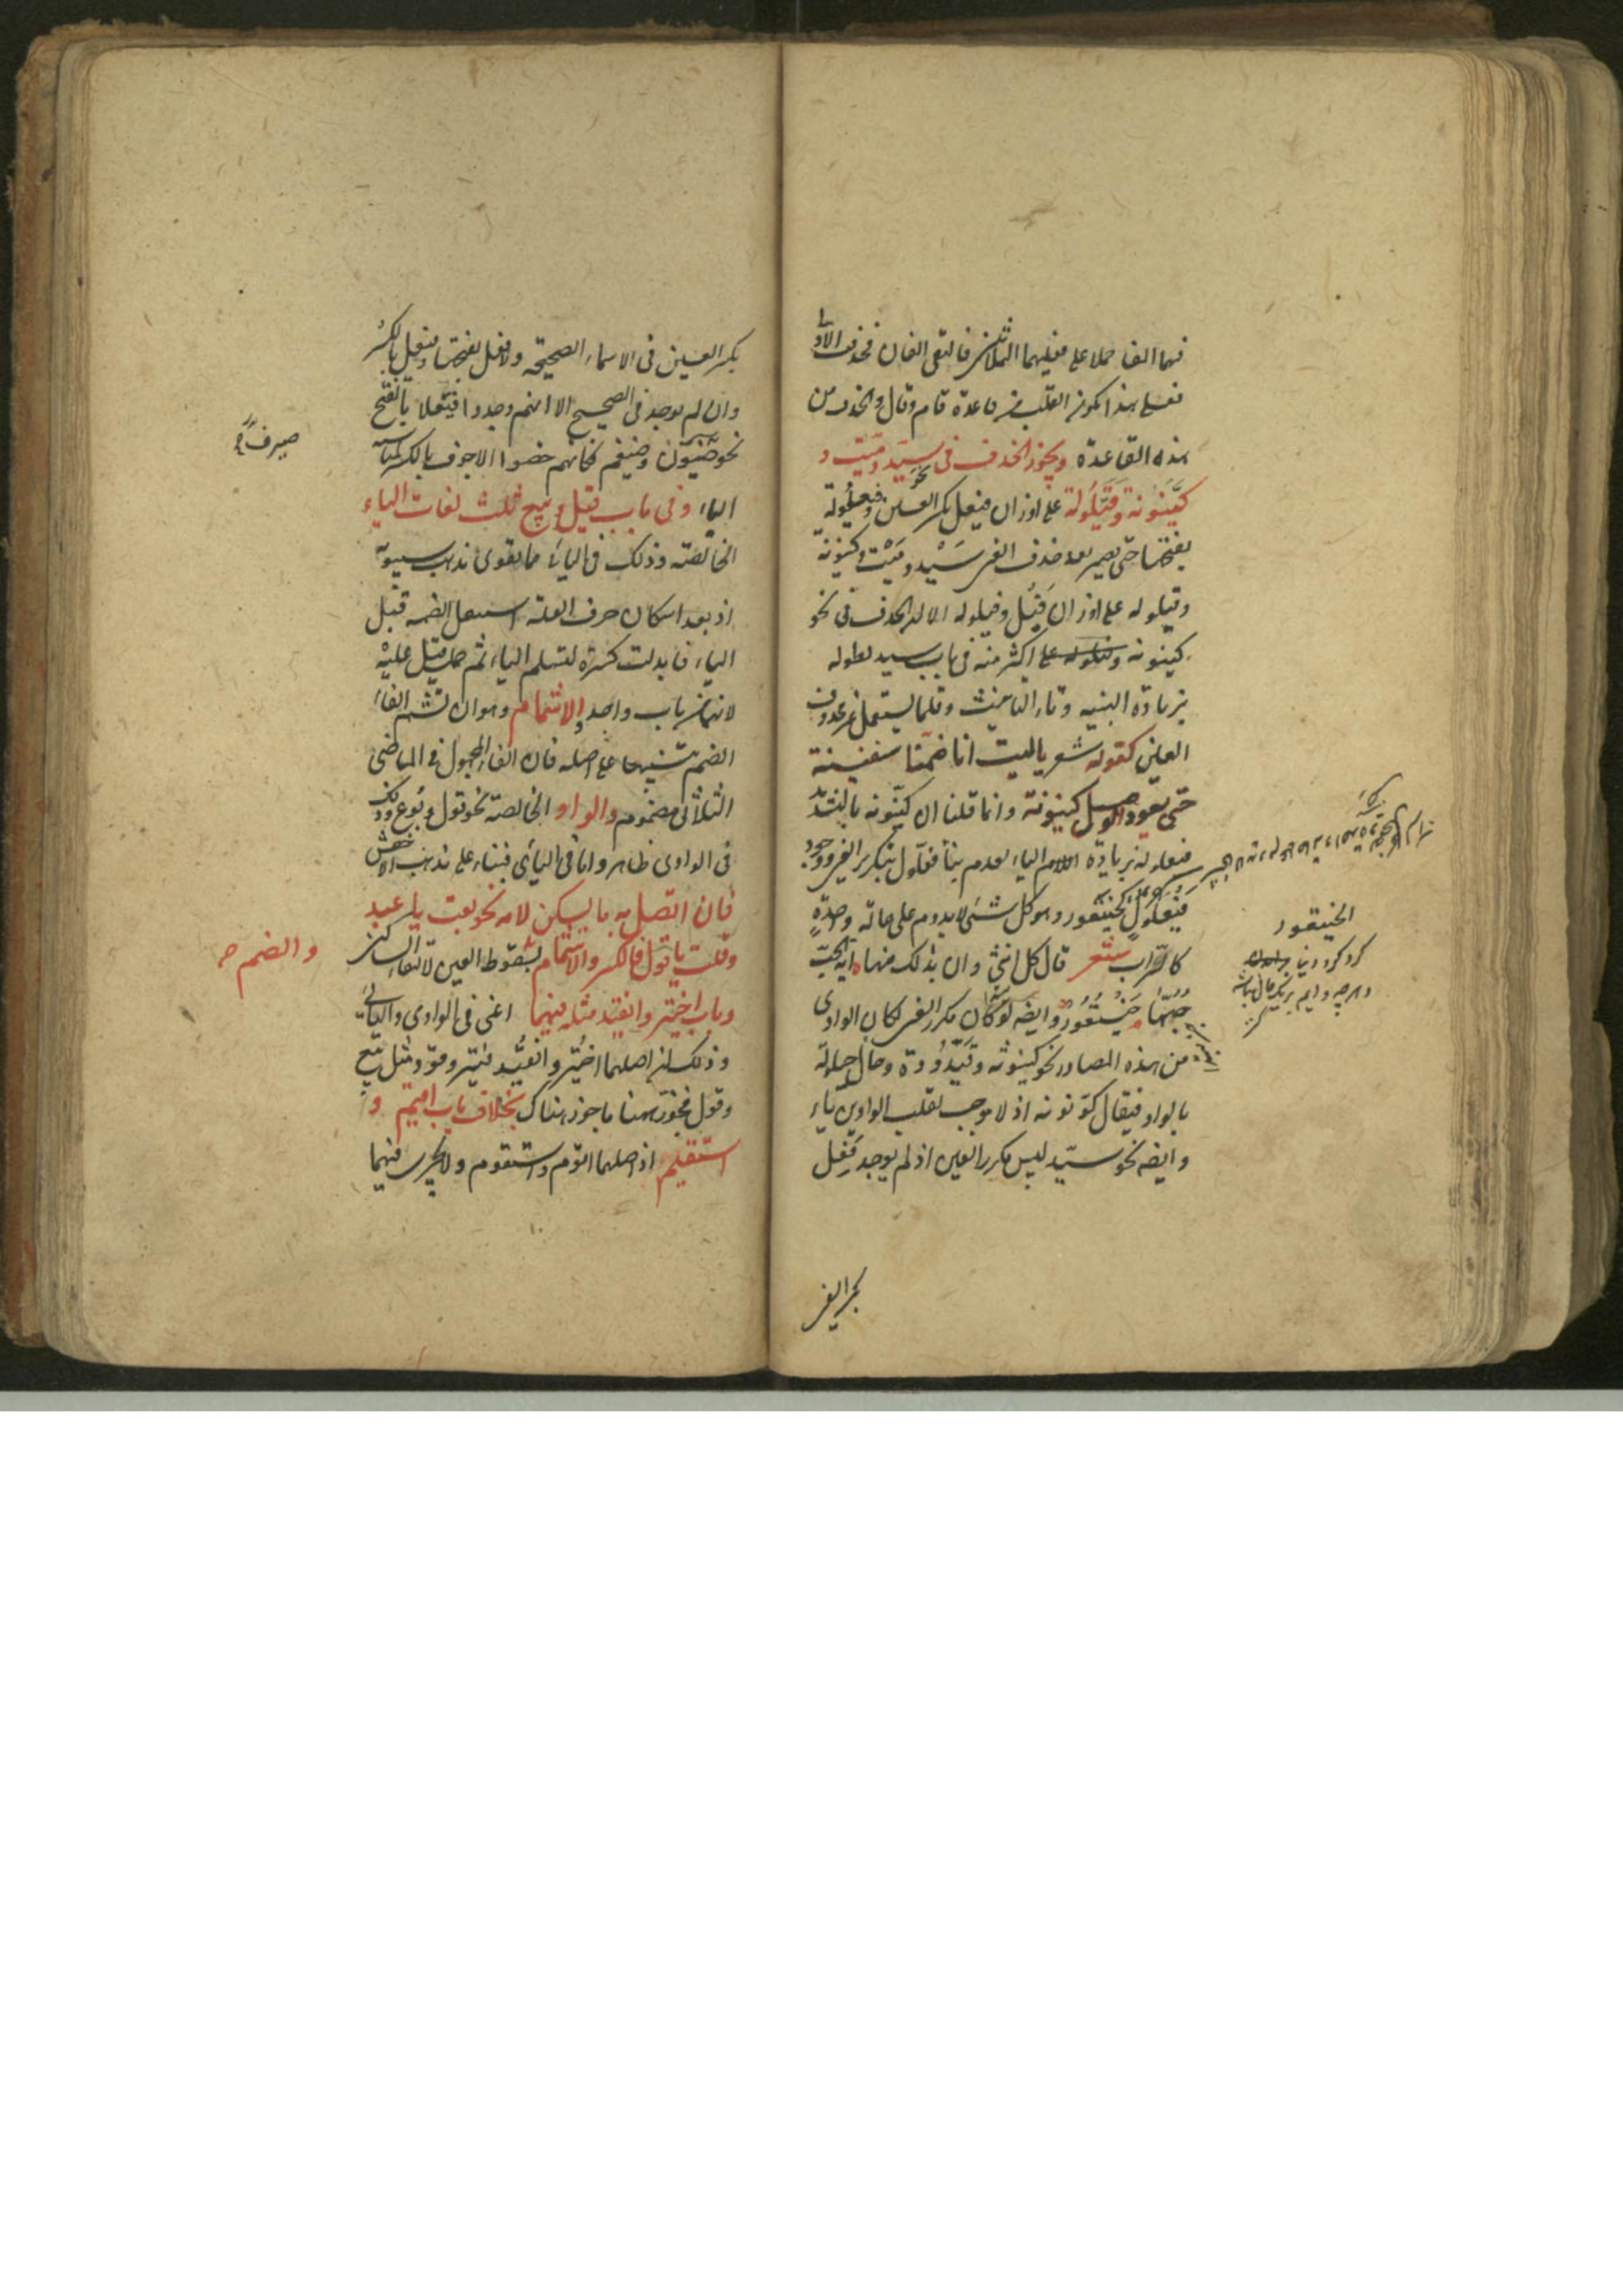 فيهما الفا حملا على فعليهما الثلاثيين فالتقى الفان فحذفت الاولى
فعلى هذا يكون القلب من قاعدة قام وقال والحذف من
هذه القاعدة ويجوز الحذف فى سيّد وميّت و
كيّنونة وقيّلولة على اوزان فيعل بكسر العين وفيعلولة
بفتحها حتى يصير بعد حذف العين سَيْد ومَيْت وكينونة
وقيلولة على اوزان فَيْل وفيلولة الا ان الحذف فى نحو
كينونة وقيلولة اكثر منه فى باب سيد لطوله
بزيادة البنية وتاء التأنيث وقلما يستعمل غير محذوف
العين كقوله شعر ياليت انا ضمّنا سفينة
حتى يعود الوصل كينونة وانما قلنا ان كيّنونة بالتشديد
فيعلولة بزيادة الياء لعدم بناء فعّلول بتكرير العين ووجود
فيعلول كخيتعور وهو كل شىء لا يدوم على حالة واحدة
كالسراب شعر قال كل انثى وان بدا لك منها اية الحبّ
حبّها خَيْتَعُورٌ وايضه لو كان مكرر العين لكان الواوى
من هذه المصادر نحو كينونة وقيّدودة وحال حيلولة
بالواو فيقال كوّنونة اذ لا موجب لقلب الواوين ياء
وايضه نحو سيّد ليس مكرر العين اذ لم يوجد فَعِّل
الخيتعور
كرد كرد دنيا
بكسر العين
بكسر العين فى الاسماء الصحيحة ولا فعل بفتحها وفيعل بالكسر
وان لم يوجد فى الصحيح الا انهم وجدوا فيعلا بالفتح
نحو صَيْرَف وضيغم كانهم خصوا الاجوف بالكسر لمناسبة
الياء وفى باب قيل وبيع ثلث لغات الياء
الخالصة وذلك فى اليائى مما يقوى مذهب سيبويه
اذ بعد اسكان حرف العلة استعمل الضمة قبل
الياء فابدلت كسرة لتسلم الياء ثم حمل قيل عليه
لانهما من باب واحد والاشمام وهو ان تشم الفاء
الضم تنبيها على اصله فان الفاء المجهول فى الماضى
الثلاثى مضمومه والواو الخالصة نحو قول وبُوع وذلك
فى الواوى ظاهر واما فى اليائى فبناء على مذهب الاخفش
فان اتصل به ما يسكن لامه نحو بعت يا عبد
وقلت يا قول فالكسر والاشمام بسقوط العين لالتقاء الساكنين
والضم
وباب اختير وانقيد مثله فيهما اعنى فى الواوى واليائى
وذلك لان اصلهما اختُيِر وانقُوِد فتير وقود مثل بيع
وقول فيجوز ههنا ما جوز هناك بخلاف باب اقيم و
استقيم اذ اصلهما اقوم واستقوم ولا يجرى فيهما